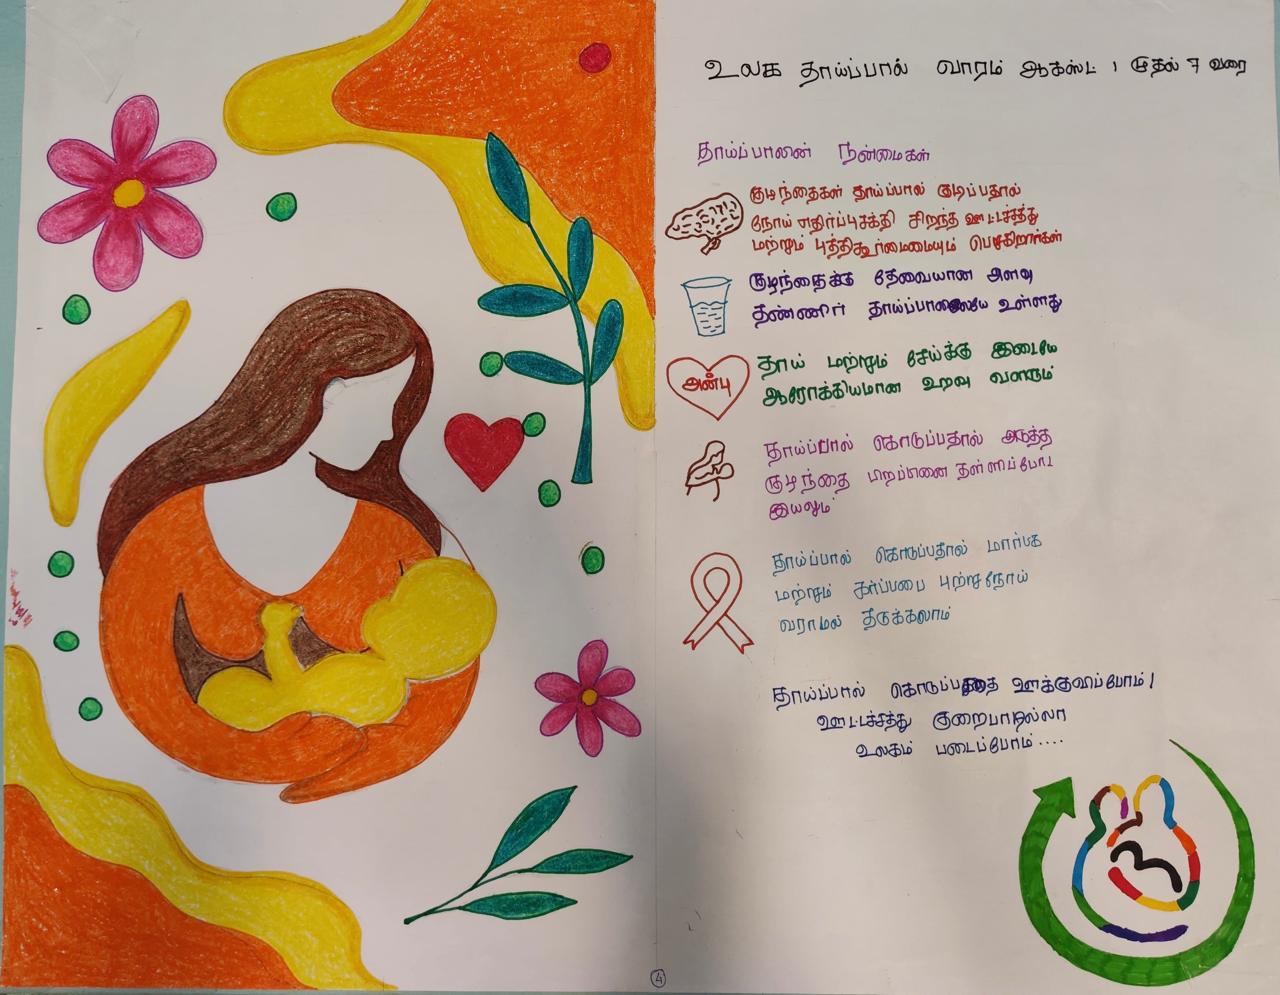 உலக தாய்ப்பால் வாரம் ஆகஸ்ட் 1 முதல் 7 வரை
தாய்ப்பாலின் நன்மைகள்
குழந்தைகள் தாய்ப்பால் குடிப்பதால்
நோய் எதிர்ப்புசக்தி சிறந்த ஊட்டச்சத்து
மற்றும் புத்திகூர்மைமையும் பெறுகிறார்கள்
குழந்தைக்கு தேவையான அளவு
தண்ணீர் தாய்ப்பாலிலேயே உள்ளது
அன்பு
தாய் மற்றும் சேய்க்கு இடையே
ஆரோக்கியமான உறவு வளரும்
தாய்ப்பால் கொடுப்பதால் அடுத்த
குழந்தை பிறப்பினை தள்ளிப்போட
இயலும்
தாய்ப்பால் கொடுப்பதால் மார்பக
மற்றும் கர்ப்பபை புற்றுநோய்
வராமல் தடுக்கலாம்
தாய்ப்பால் கொடுப்பதை ஊக்குவிப்போம்!
ஊட்டச்சத்து குறைபாடில்லா
உலகம் படைப்போம்....
4